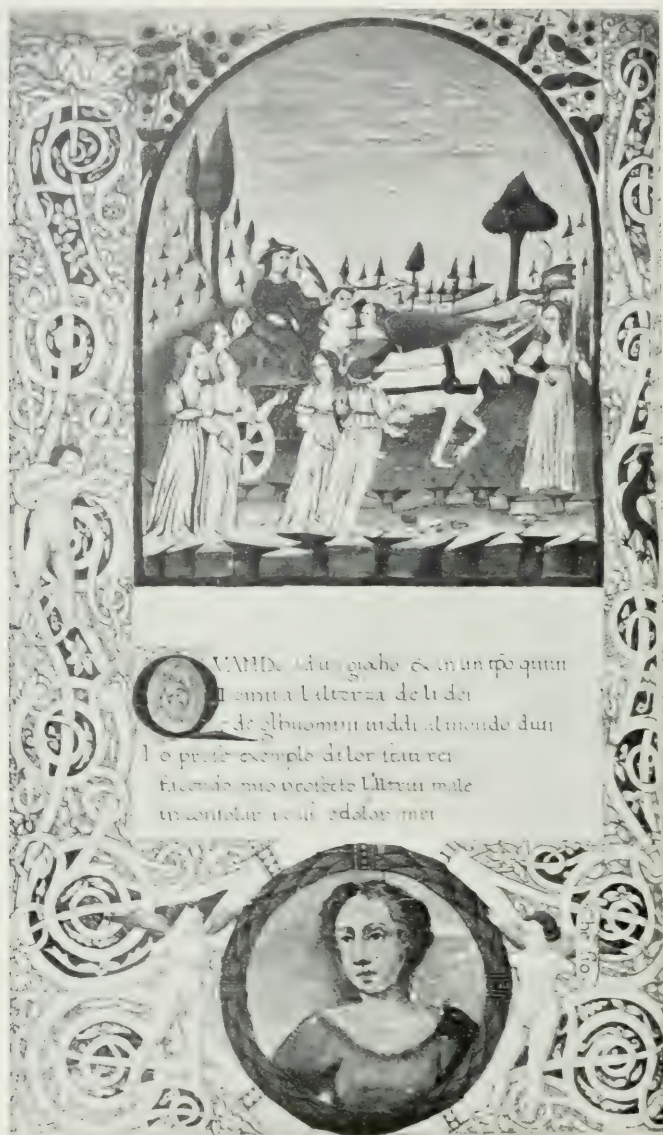 QVANDO ad un giogho & in un tpo quiui
domita l alterza de li dei
& de glhuomini uiddi al mondo diui
I o presi exemplo di lor stati rei
facendo mio profecto l altrui male
in consolar casi e dolor mei